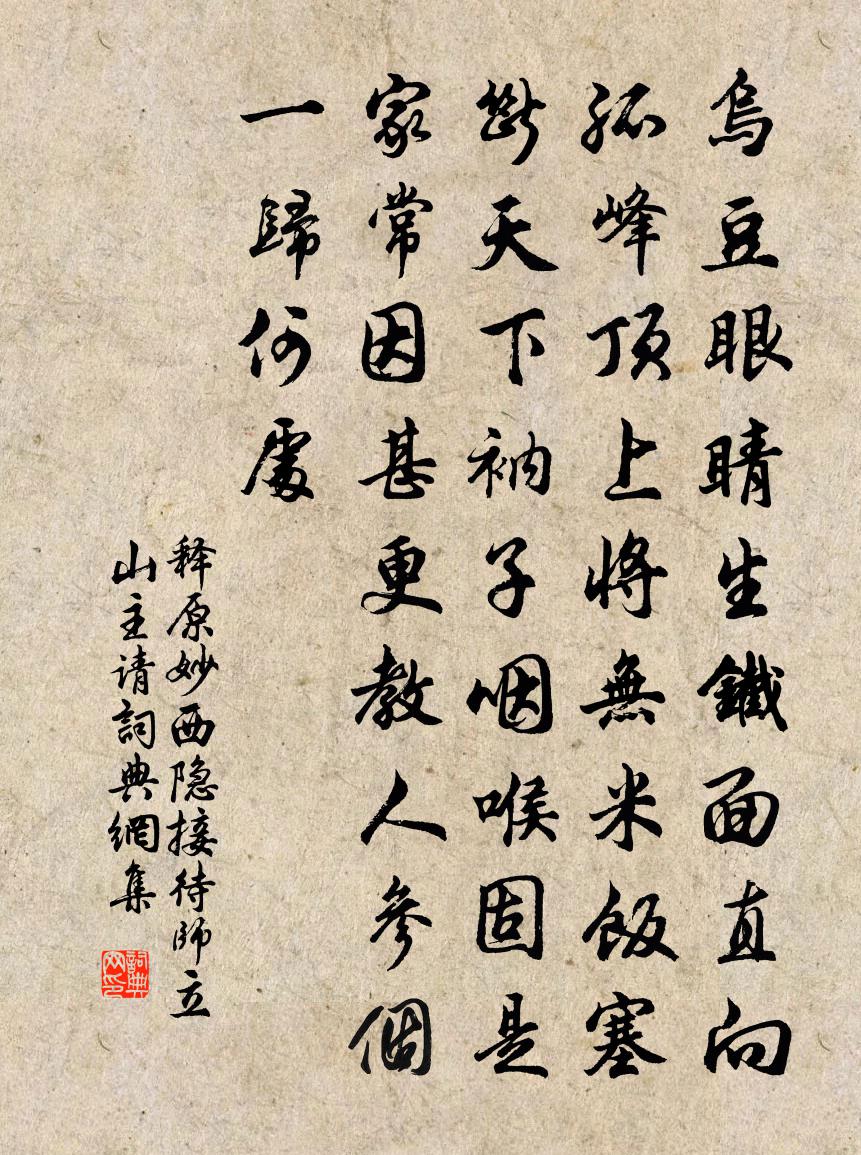 烏豆眼睛生鐵面直向
孤峰頂上將無米飯塞
斷天下衲子咽喉固是
家常因甚更教人參個
一歸何處
释原妙西隐接待师立
山主请詞典網集
詞典
网印